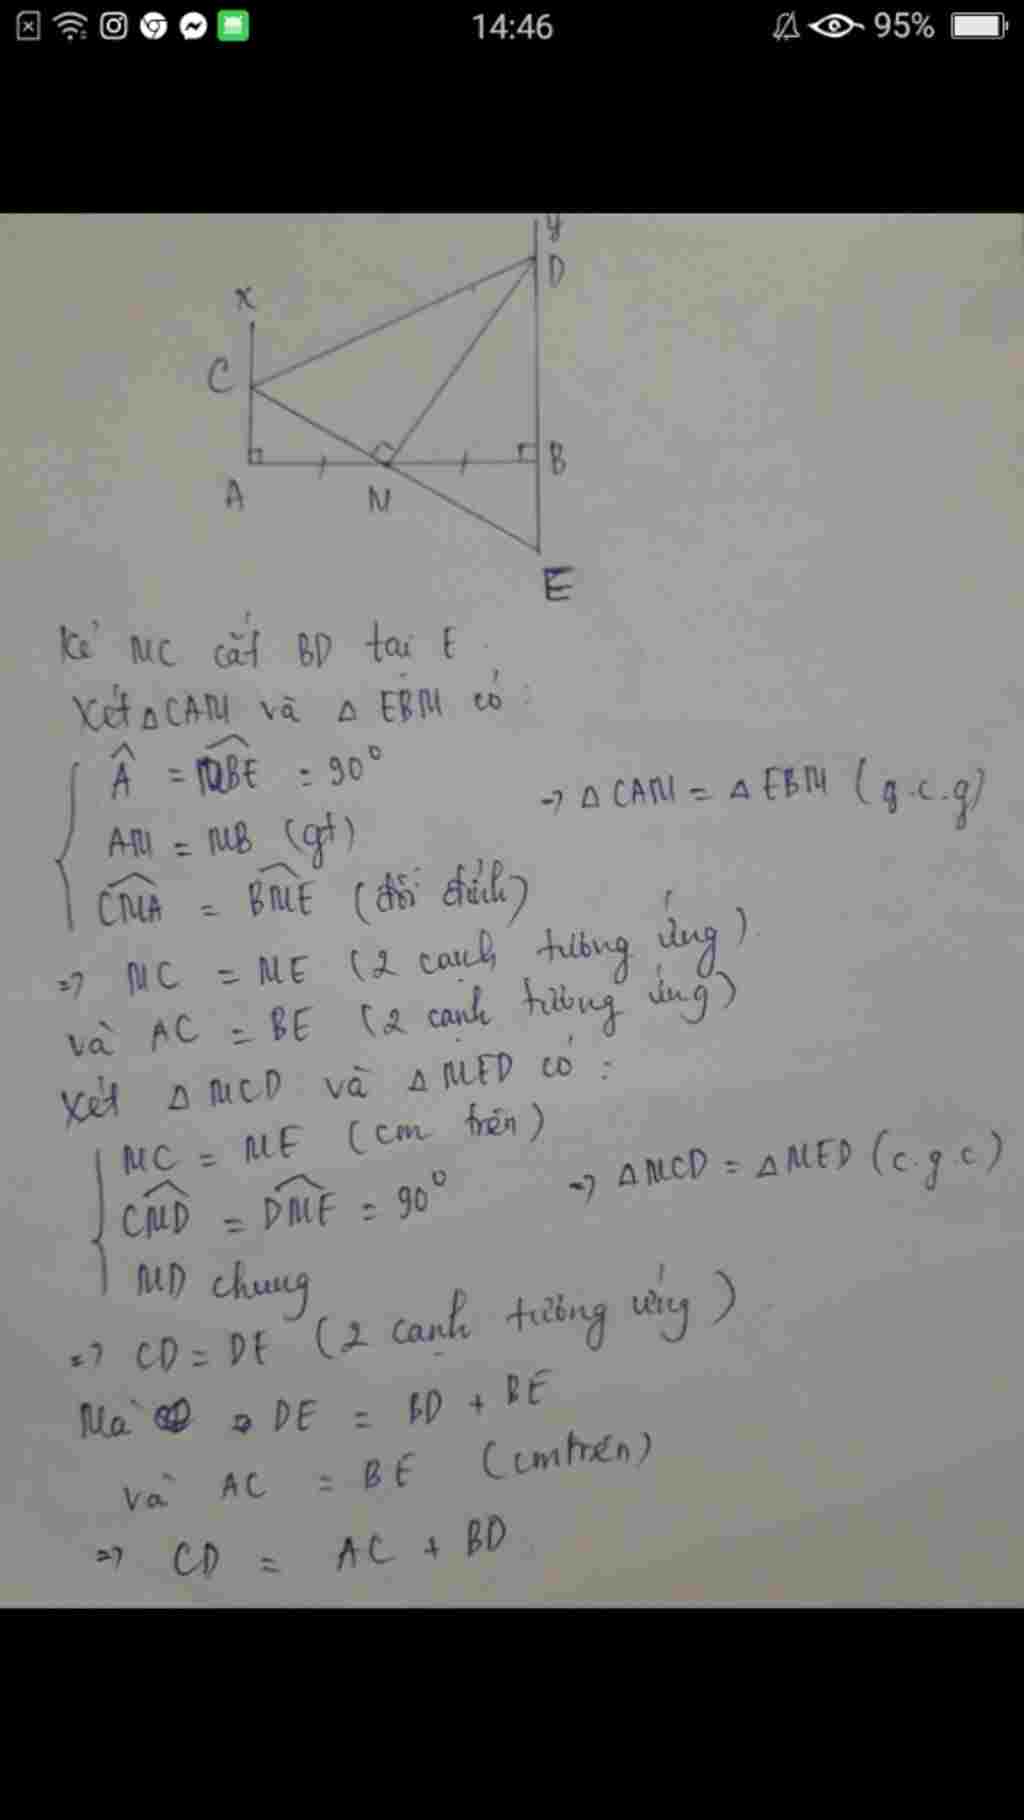 14:46
95%
y
D
x
C
B
A
M
E
Kẻ MC cắt BD tại E.
Xét △CAM và △ EBM có :
Â = MBE = 90°
→ △ CAM = △ EBM (g.c.g)
AM = MB (gt)
CMA = BME (đối đỉnh)
=> MC = ME (2 cạnh tương ứng).
và AC = BE (2 cạnh tương ứng)
Xét △ MCD và △ MED có :
MC = ME (cm trên)
CMD = DME = 90°
=> △MCD = △MED (c.g.c)
MD chung
=> CD = DE (2 cạnh tương ứng).
Mà DE = BD + BE
và AC = BE (cm trên)
=> CD = AC + BD